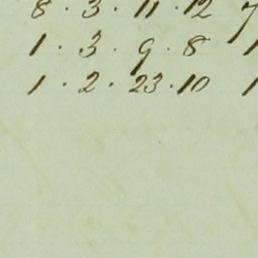 8 · 3 · 11 · 12 7
1 · 3 · 9 · 8 1
1 · 2 · 23 · 10 1